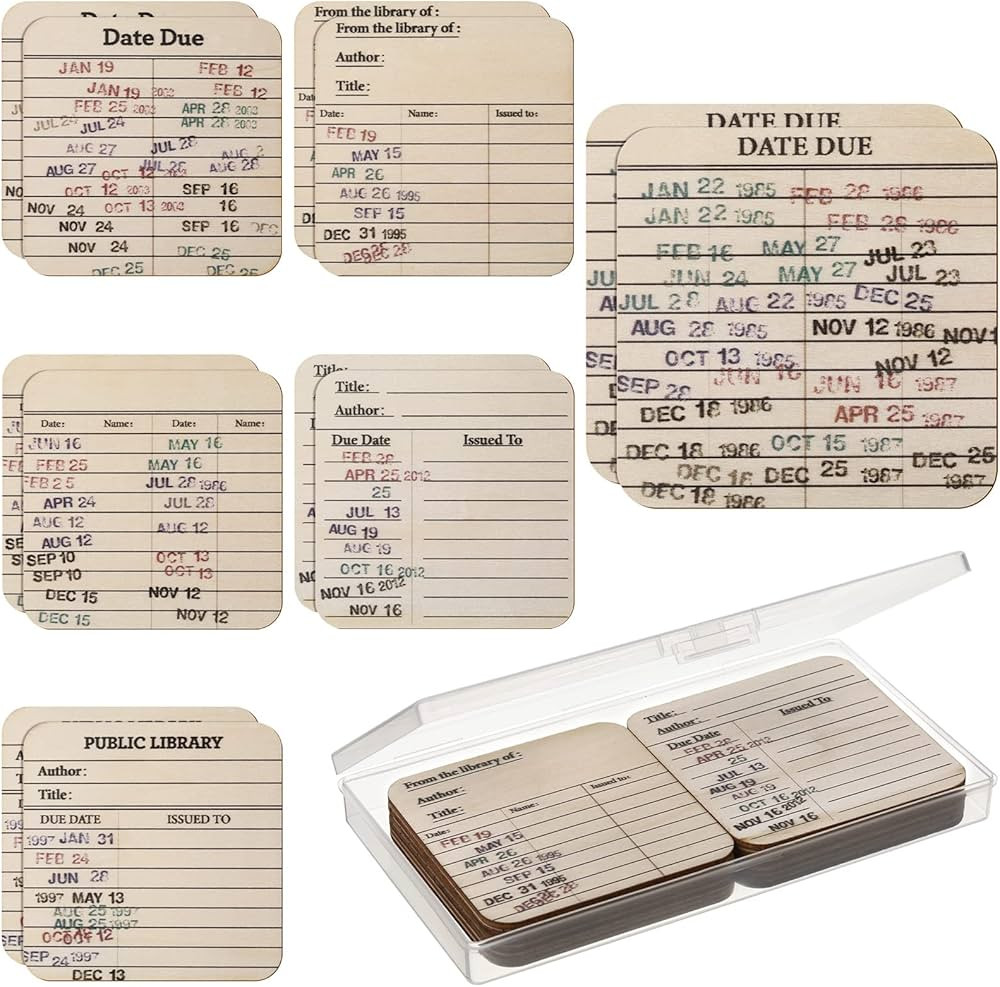 Date Due
JAN 19 FEB 12
JAN 19 2003 FEB 12
FEB 25 2003 APR 28 2003
JUL 24 JUL 24 APR 28 2003
AUG 27 JUL 28 AUG 2
AUG 27 OCT 12 2003 JUL 26 AUG 28
OCT 12 2003 SEP 16
NOV 24 OCT 13 2003 16
NOV 24 SEP 16 DEC
NOV 24 DEC 25
DEC 25 DEC 25
From the library of :
From the library of :
Author:
Title:
Date: Name: Issued to:
FEB 19
MAY 15
APR 26
AUG 26 1995
SEP 15
DEC 31 1995
DEC 28
DATE DUE
DATE DUE
JAN 22 1985 FEB 28 1986
JAN 22 1985 FEB 28 1986
FEB 16 MAY 27 JUL 23
JUN 24 MAY 27 JUL 23
JUL 28 AUG 22 1985 DEC 25
AUG 28 1985 NOV 12 1986 NOV 1
OCT 13 1985 NOV 12
SEP 28 JUN 16 JUN 16 1987
DEC 18 1986 APR 25 1987
DEC 18 1986 OCT 15 1987 DEC 25
DEC 18 DEC 25 1987 1987
DEC 18 1986
Date: Name: Date: Name:
JUN 16 MAY 16
FEB 25 MAY 16
FEB 25 JUL 28 1986
APR 24 JUL 28
AUG 12 AUG 12
AUG 12
SEP 10 OCT 13
SEP 10 OCT 13
DEC 15 NOV 12
DEC 15 NOV 12
Title:
Title:
Author:
Due Date Issued To
FEB 28
APR 25 2012
25
JUL 13
AUG 19
AUG 19
OCT 16 2012
NOV 16 2012
NOV 16
PUBLIC LIBRARY
Author:
Title:
DUE DATE ISSUED TO
1997 JAN 31
FEB 24
JUN 28
1997 MAY 13
AUG 25 1997
AUG 25 1997
OCT 12
SEP 24 1997
DEC 13
From the library of :
Author:
Title:
Date: Name: Issued to:
FEB 19
MAY 15
APR 26
AUG 26 1995
SEP 15
DEC 31 1995
DEC 28
Title:
Author:
Due Date Issued To
FEB 28
APR 25 2012
25
JUL 13
AUG 19
OCT 16 2012
NOV 16 2012
NOV 16